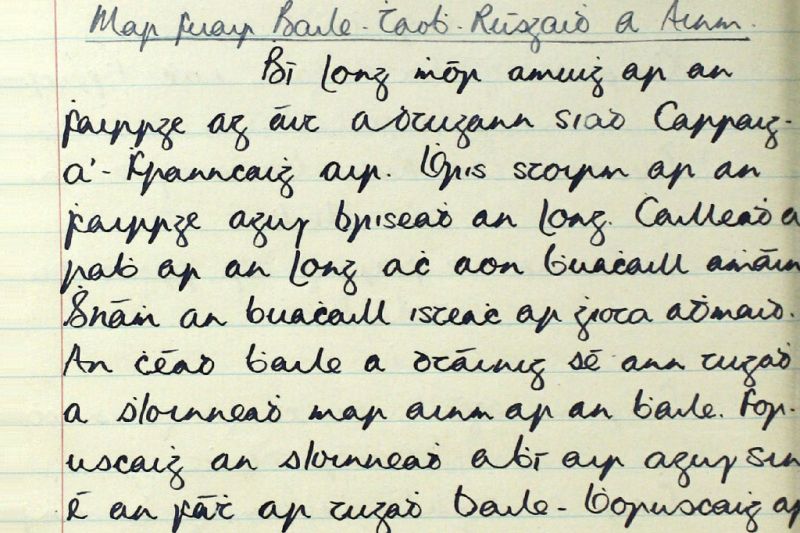 Mar fuair Baile-Ṫaob-Rúsgaid a Ainm.
Bí long ṁór amuiġ ar an
fairrge ag áit a dtugann siad Carraig-
a'-Franncaiġ air. Ḃris stoirm ar an
fairrge agus briseaḋ an long. Cailleaḋ a
raḃ ar an long aċ aon ḃuaċaill aṁáin
Ṡnáiṁ an buaċaill isteaċ ar ġiota aḋmaid.
An ċéad ḃaile a dtáiniġ sé ann tugaḋ
a ṡloinneaḋ mar ainm ar an ḃaile. For-
uscaiġ an sloinneaḋ a ḃí air agus sin
é an fáṫ ar tugaḋ Baile-Ḃoruscaiġ ar